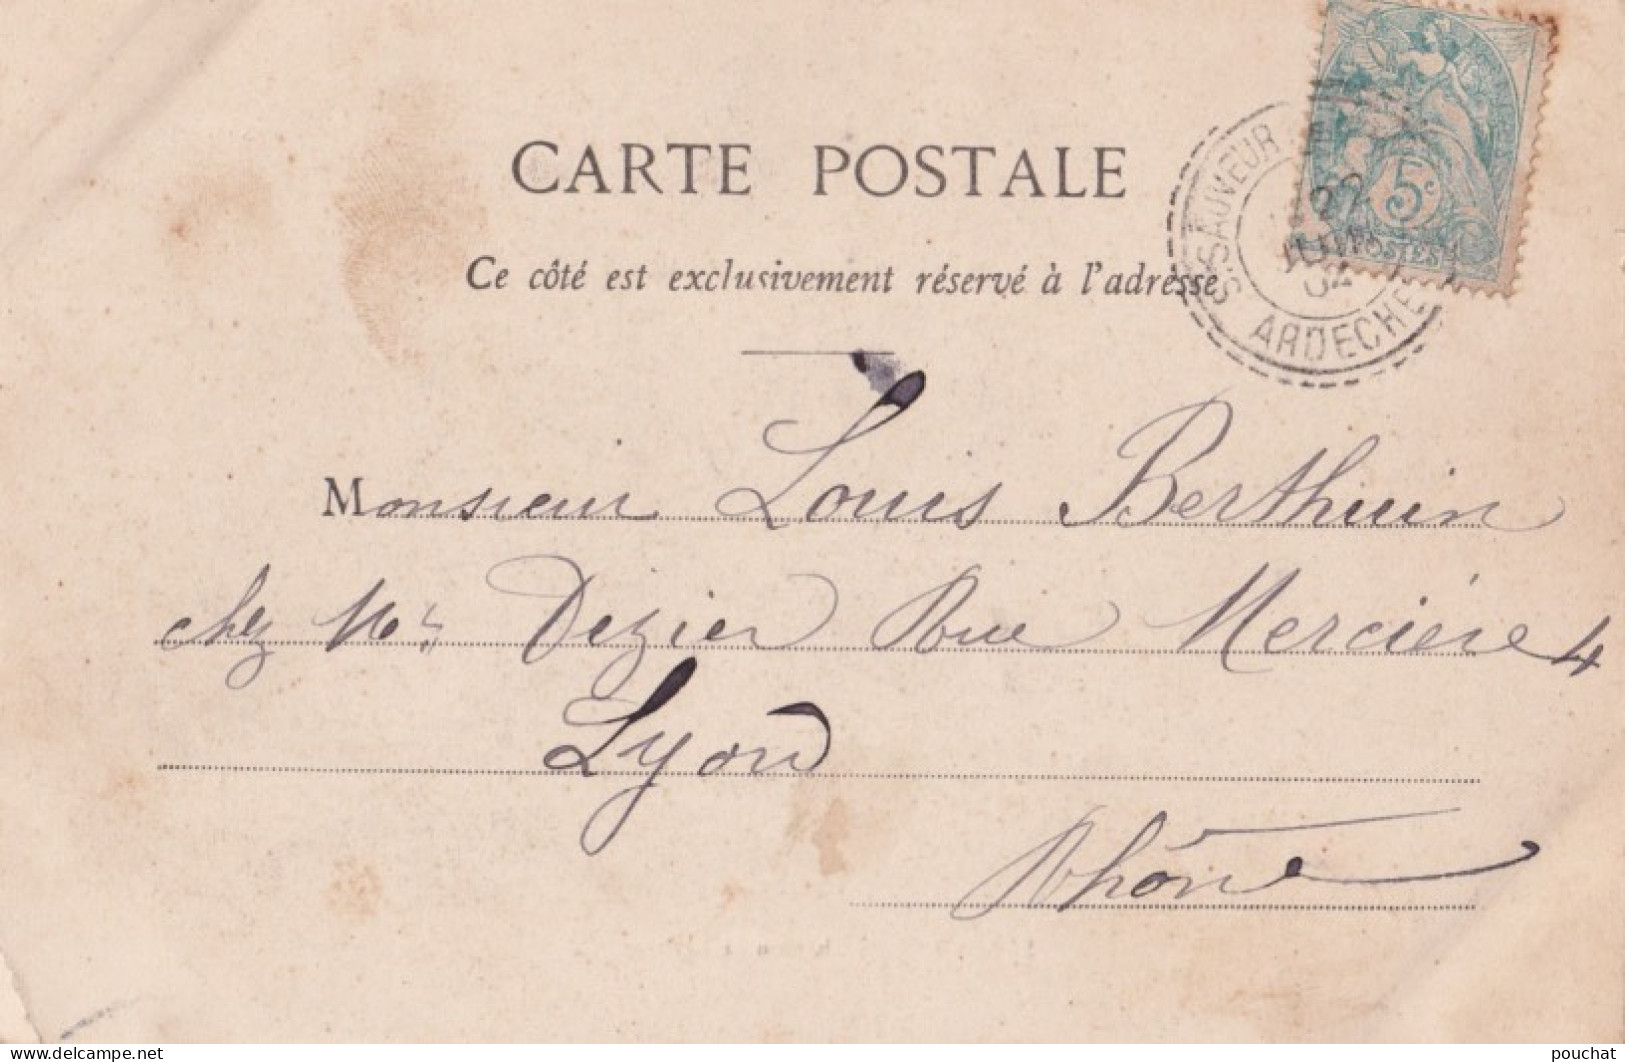 CARTE POSTALE
Ce côté est exclusivement réservé à l'adresse
5c
POSTES
ST SAUVEUR
22
JUIN
04
ARDECHE
Monsieur Louis Berthuin
chez Mr Dezier Rue Mercière 4
Lyon
Rhône
www.delcampe.net
pouchat